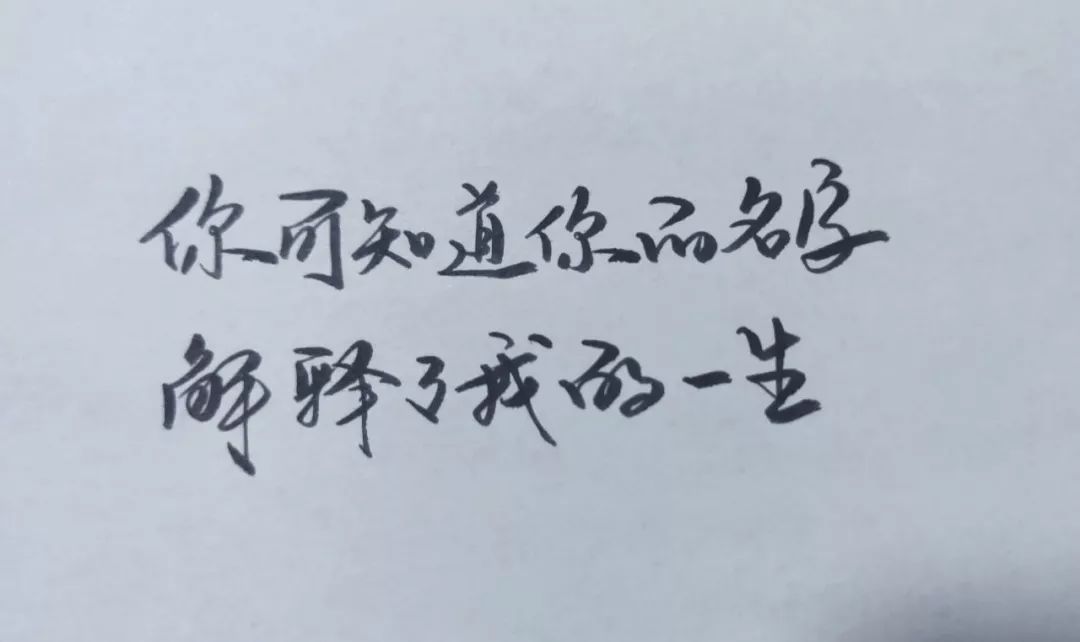 你可知道你的名字
解释了我的一生